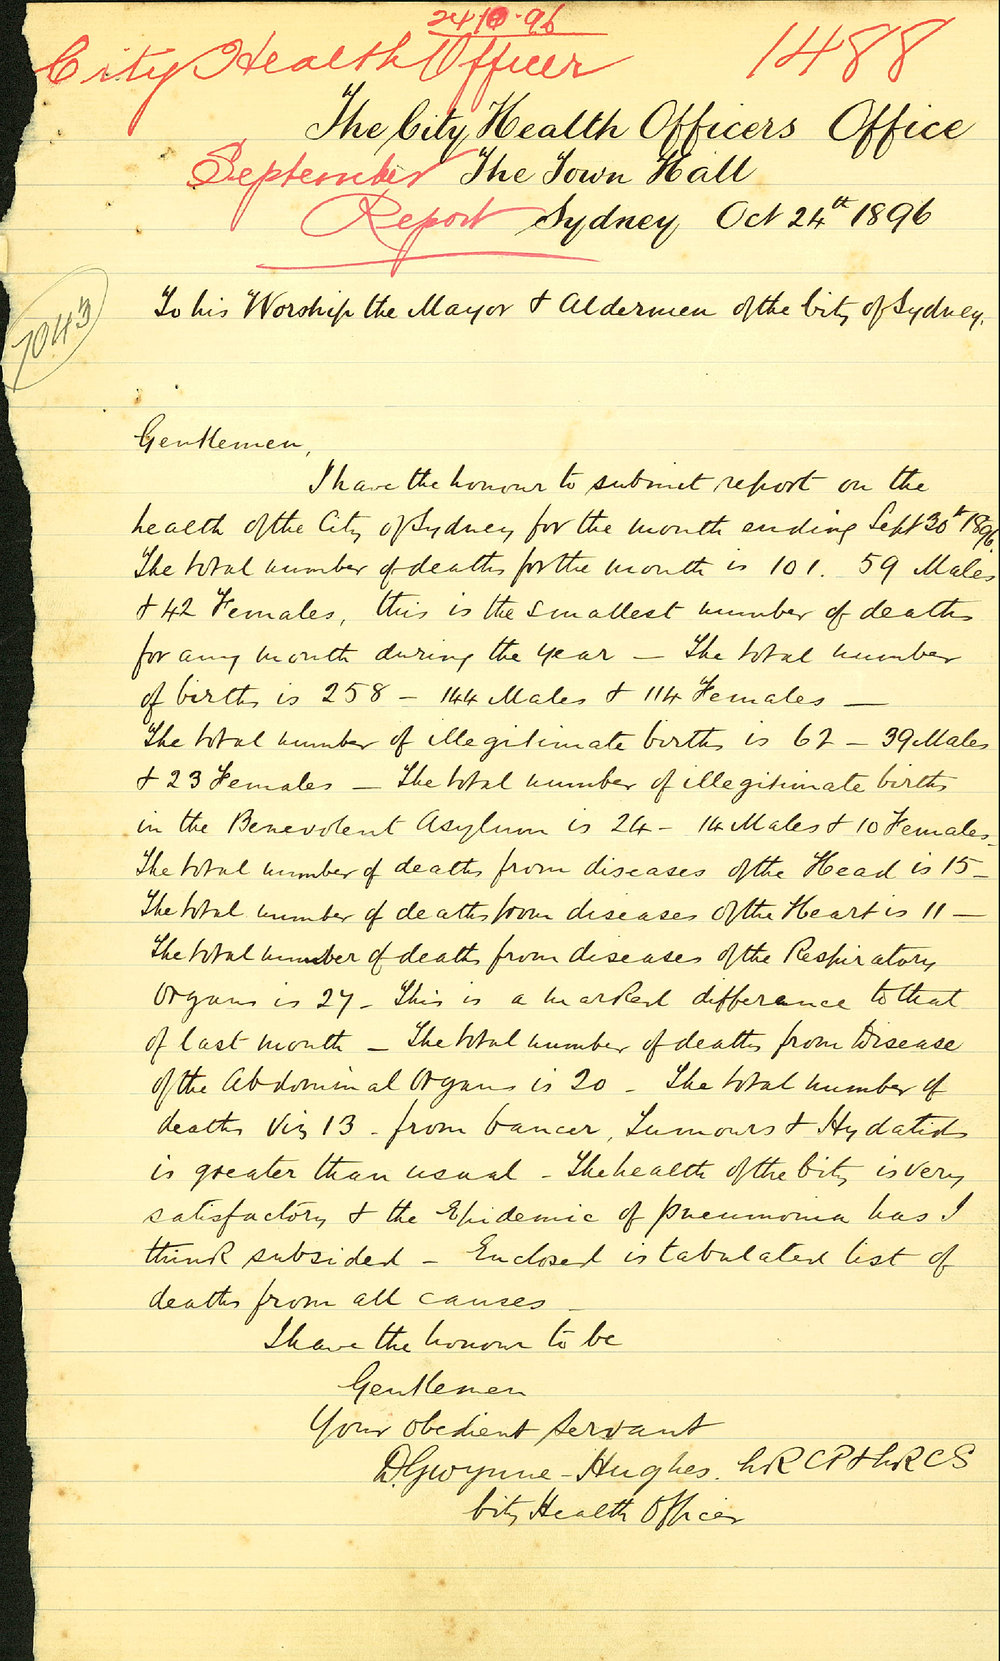 24 10 96
City Health Officer
1488
The City Health Officers Office
September The Town Hall
Report Sydney Oct 24th 1896
1043
To his Worship the Mayor & Aldermen of the City of Sydney.
Gentlemen,
I have the honour to submit report on the
health of the City of Sydney for the month ending Sept 30th 1896.
The total number of deaths for the month is 101. 59 Males
& 42 Females, this is the smallest number of deaths
for any month during the year — The total number
of births is 258 – 144 Males & 114 Females —
The total number of illegitimate births is 62 – 39 Males
& 23 Females — The total number of illegitimate births
in the Benevolent Asylum is 24 – 14 Males & 10 Females –
The total number of deaths from diseases of the Head is 15 –
The total number of deaths from diseases of the Heart is 11 —
The total number of deaths from diseases of the Respiratory
Organs is 27 – This is a marked difference to that
of last month – The total number of deaths from Disease
of the Abdominal Organs is 20 – The total number of
deaths viz 13 – from Cancer, Tumours & Hydatids
is greater than usual – The health of the City is very
satisfactory & the Epidemic of pneumonia has I
think subsided – Enclosed is tabulated list of
deaths from all causes –
I have the honour to be
Gentlemen
Your obedient servant
D. Gwynne-Hughes. LRCP & LRCS
City Health Officer